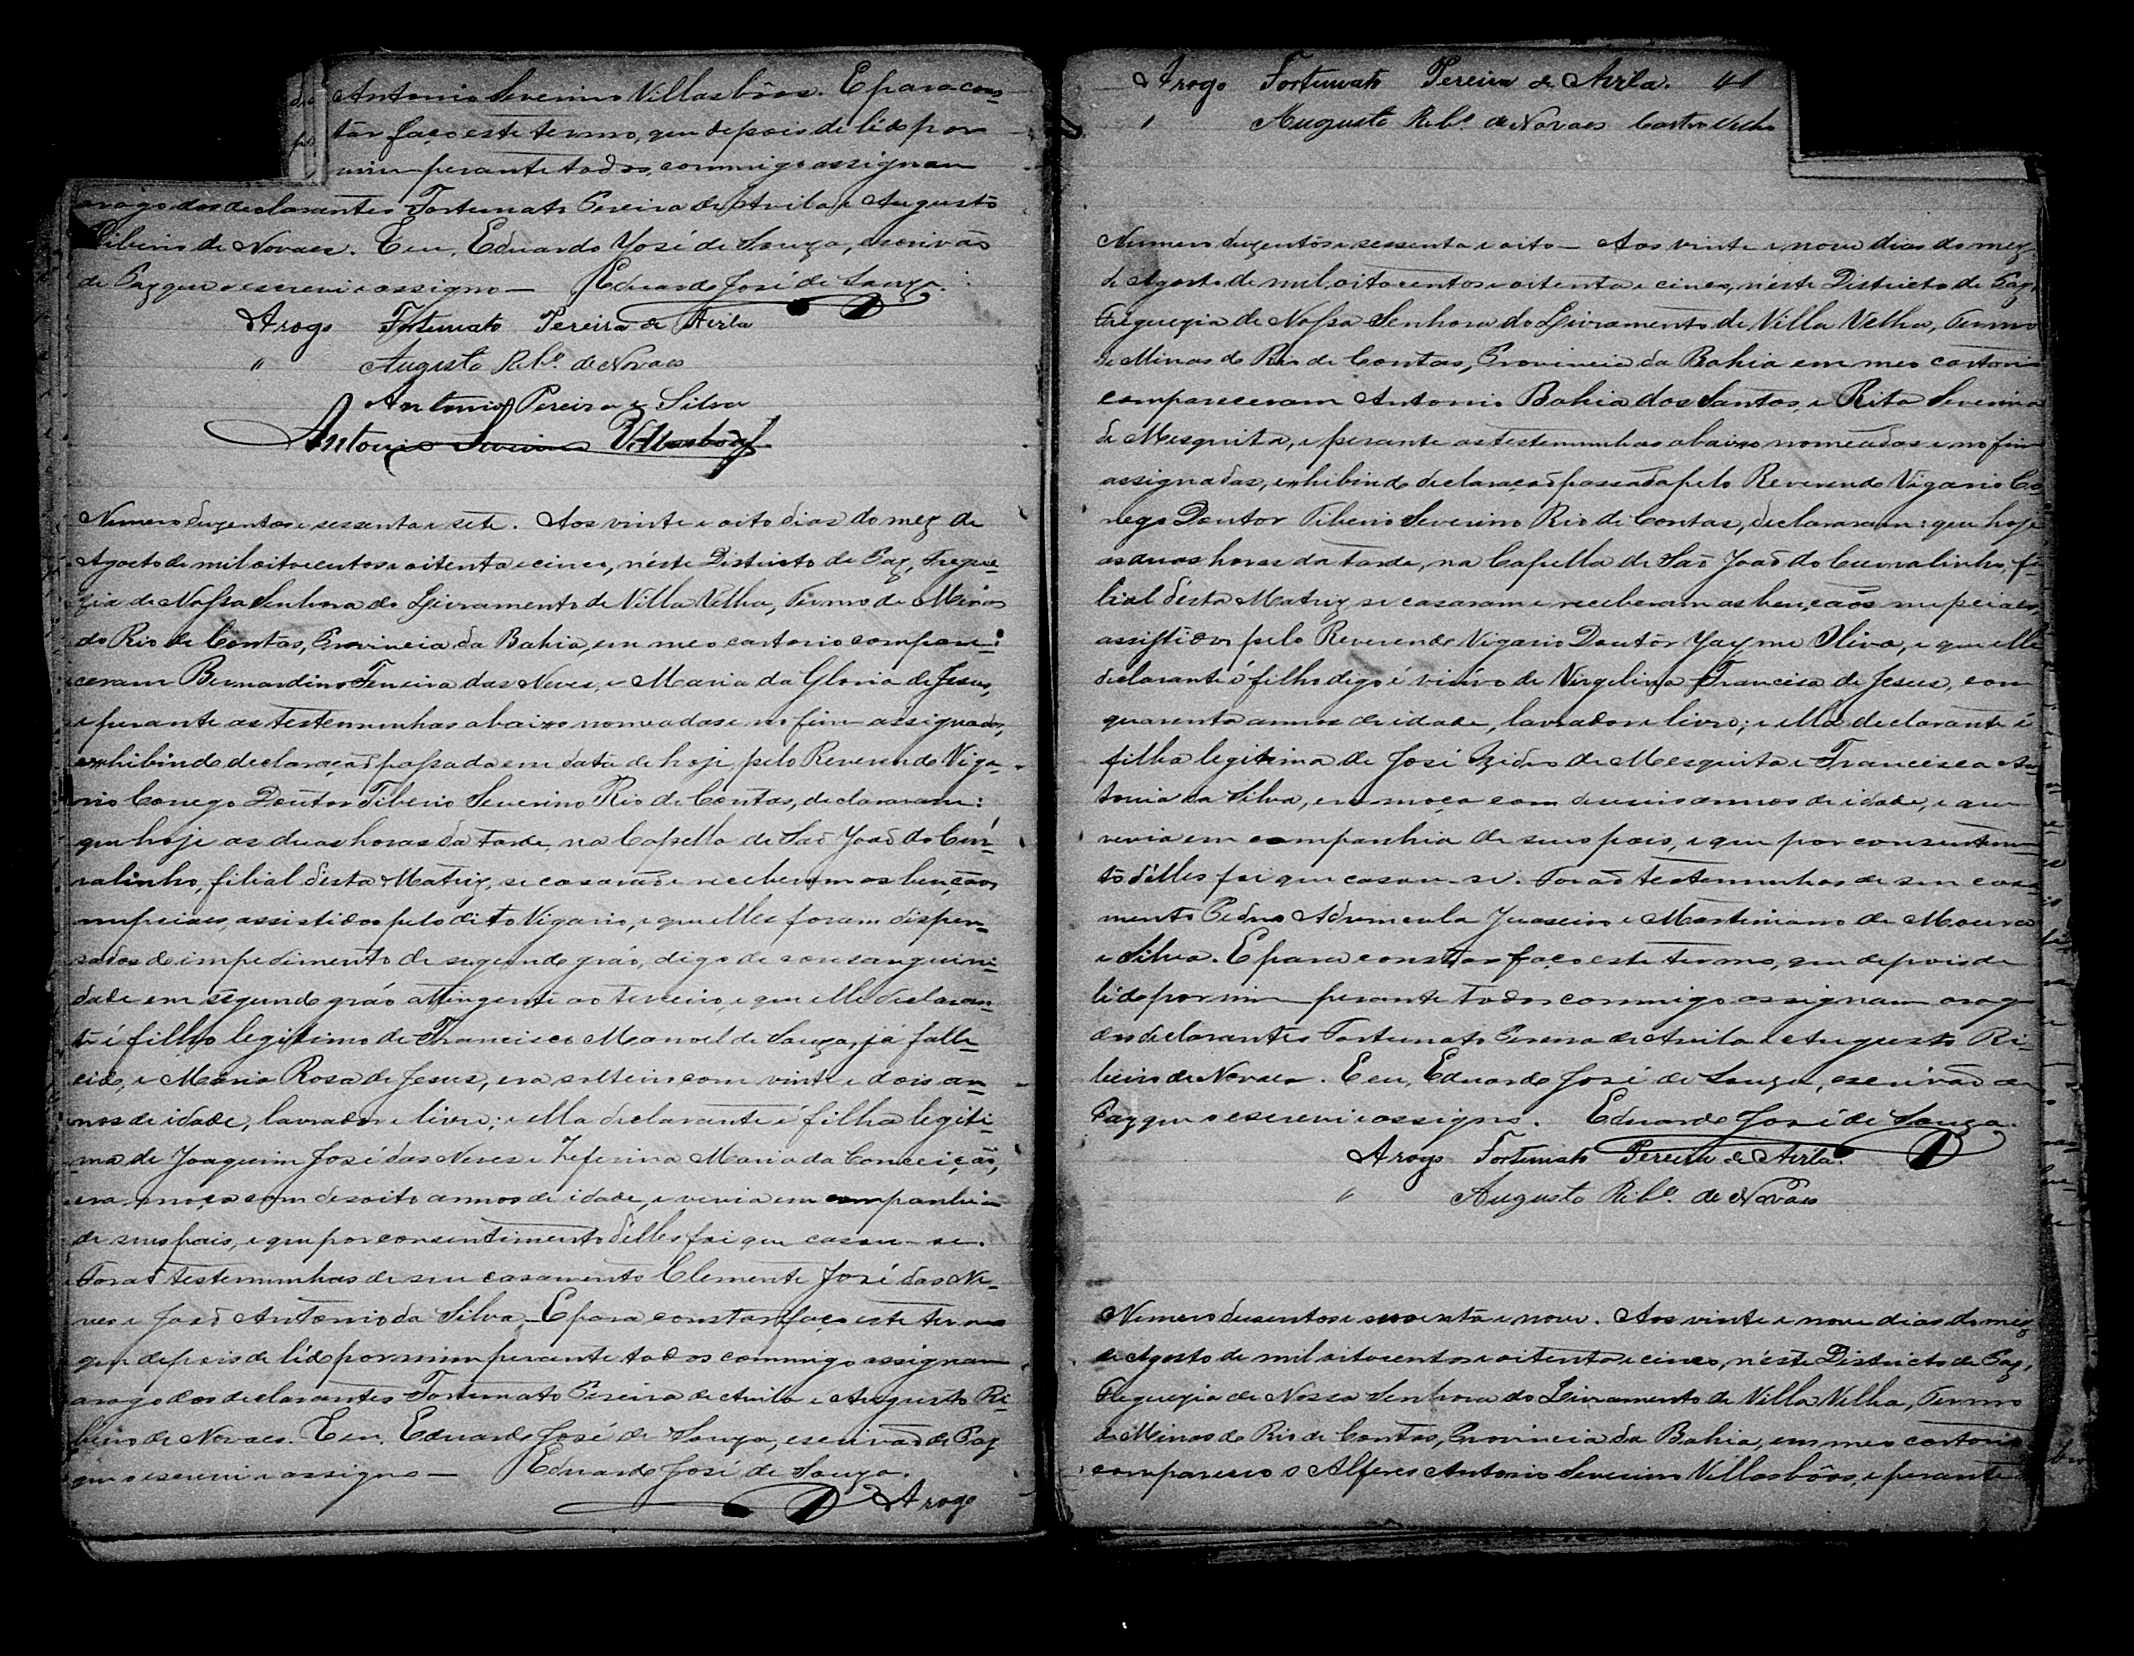 Antonio Severino Villasbôas. E para cons-
tar faço este termo, que depois de lido por
mim perante todos, commigo assignam
arogo dos declarantes Fortunato Pereira de Avila e Augusto
Ribeiro de Novaes. E eu, Eduardo José de Souza, escrivão
de Paz que o escrevi e assigno — Eduardo José de Souza.
Arogo Fortunato Pereira de Avila
" Augusto Rib.º de Novaes
Antonio Pereira e Silva
Antonio Severino Villasboas
Numero duzentos e sessenta e sete. Aos vinte e oito dias do mez de
Agosto de mil oitocentos e oitenta e cinco, néste Districto de Paz, Fregue-
zia de Nossa Senhora do Livramento de Villa Velha, Termo de Minas
do Rio de Contas, Provincia da Bahia, em meo cartorio compare-
ceram Bernardino Ferreira das Neves, e Maria da Gloria de Jesus,
e perante as testemunhas abaixo nomeadas e no fim assignados,
exhibindo declaração passada em data de hoje, pelo Reverendo Viga-
rio Conego Doutor Tiberio Severino Rio de Contas, declararam:
que hoje as duas horas da tarde, na Capella de São João do Cur-
ralinho, filial désta Matriz, se casarão e receberam as bençãos
nupciaes, assistidos pelo dito Vigario, e que elles foram dispen-
sados do impedimento de segundo gráo, digo de consanguini-
dade em segundo gráo attingente ao terceiro, e que elle declaran-
te é filho legitimo de Francisco Manoel de Souza, já falle-
cido, e Maria Rosa de Jesus, era solteiro com vinte e dois an-
nos de idade, lavrador e livre; e ella declarante é filha legiti-
ma de Joaquim José das Neves e Zeferina Maria da Conceição,
era moça com desoito annos de idade, e vivia em companhia
de seus pais, e que por consentimento délles foi que casou-se.
Forão testemunhas de seu casamento Clemente José das Ne-
ves e João Antonio da Silva. E para constar faço este termo
que depois de lido por mim perante todos commigo assignam
arogo dos declarantes Fortunato Pereira de Avila e Augusto Ri-
beiro de Novaes. E eu, Eduardo José de Souza, escrivão de Paz
que o escrevi e assigno — Eduardo José de Souza.
Arogo
Arogo Fortunato Pereira de Avila. 41
" Augusto Rib.º de Novaes Castro Velho
Numero duzentos e sessenta e oito — Aos vinte e nove dias do mez
de Agosto de mil oitocentos e oitenta e cinco, néste Districto de Paz,
Freguezia de Nossa Senhora do Livramento de Villa Velha, Termo
de Minas do Rio de Contas, Provincia da Bahia em meo cartorio
compareceram Antonio Bahia dos Santos, e Rita Severina
de Mesquita, e perante as testemunhas abaixo nomeadas e no fim
assignadas, exhibindo declaração passada pelo Reverendo Vigario Co-
nego Doutor Tiberio Severino Rio de Contas, declararam: que hoje
as duas horas da tarde, na Capella de São João do Curralinho, fi-
lial désta Matriz se casaram e receberam as bençãos nupciaes,
assistidos pelo Reverendo Vigario Doutor Jayme Oliva, e que elle
declarante é filho digo é viuvo de Virgelina Francisca de Jesus, com
quarenta annos de idade, lavrador e livre; e ella declarante é
filha legitima de José Izidro de Mesquita e Francisca An-
tonia da Silva, era moça com annos de idade, e que
vevia em companhia de seus pais, e que por consentimen-
to délles foi que casou-se. Forão testemunhas de seu casa-
mento Pedro Juaseiro e Martiniano de Moura
e Silva. E para constar faço este termo, que depois de
lido por mim perante todos commigo assignam arogo
dos declarantes Fortunato Pereira de Avila e Augusto Ri-
beiro de Novaes. E eu, Eduardo José de Souza, escrivão de
Paz que o escrevi e assigno. Eduardo José de Souza.
Arogo Fortunato Pereira de Avila.
" Augusto Rib.º de Novaes
Numero dusentos e sessenta e nove. Aos vinte e nove dias do mez
de Agosto de mil oitocentos e oitenta e cinco, néste Districto de Paz,
Freguezia de Nossa Senhora do Livramento de Villa Velha, Termo
de Minas do Rio de Contas, Provincia da Bahia, em meo cartorio
compareceo o Alferes Antonio Severino Villasbôas, e perante